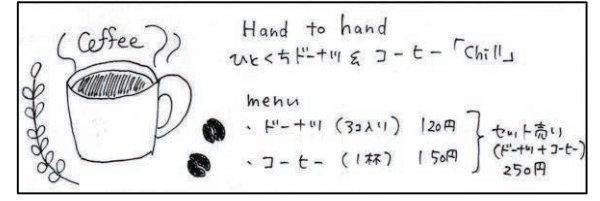 Coffee
Hand to hand
ひとくちドーナツ & コーヒー「Chill」
menu
・ドーナツ（3コ入り） 120円
・コーヒー（1杯） 150円
セット売り
（ドーナツ+コーヒー）
250円